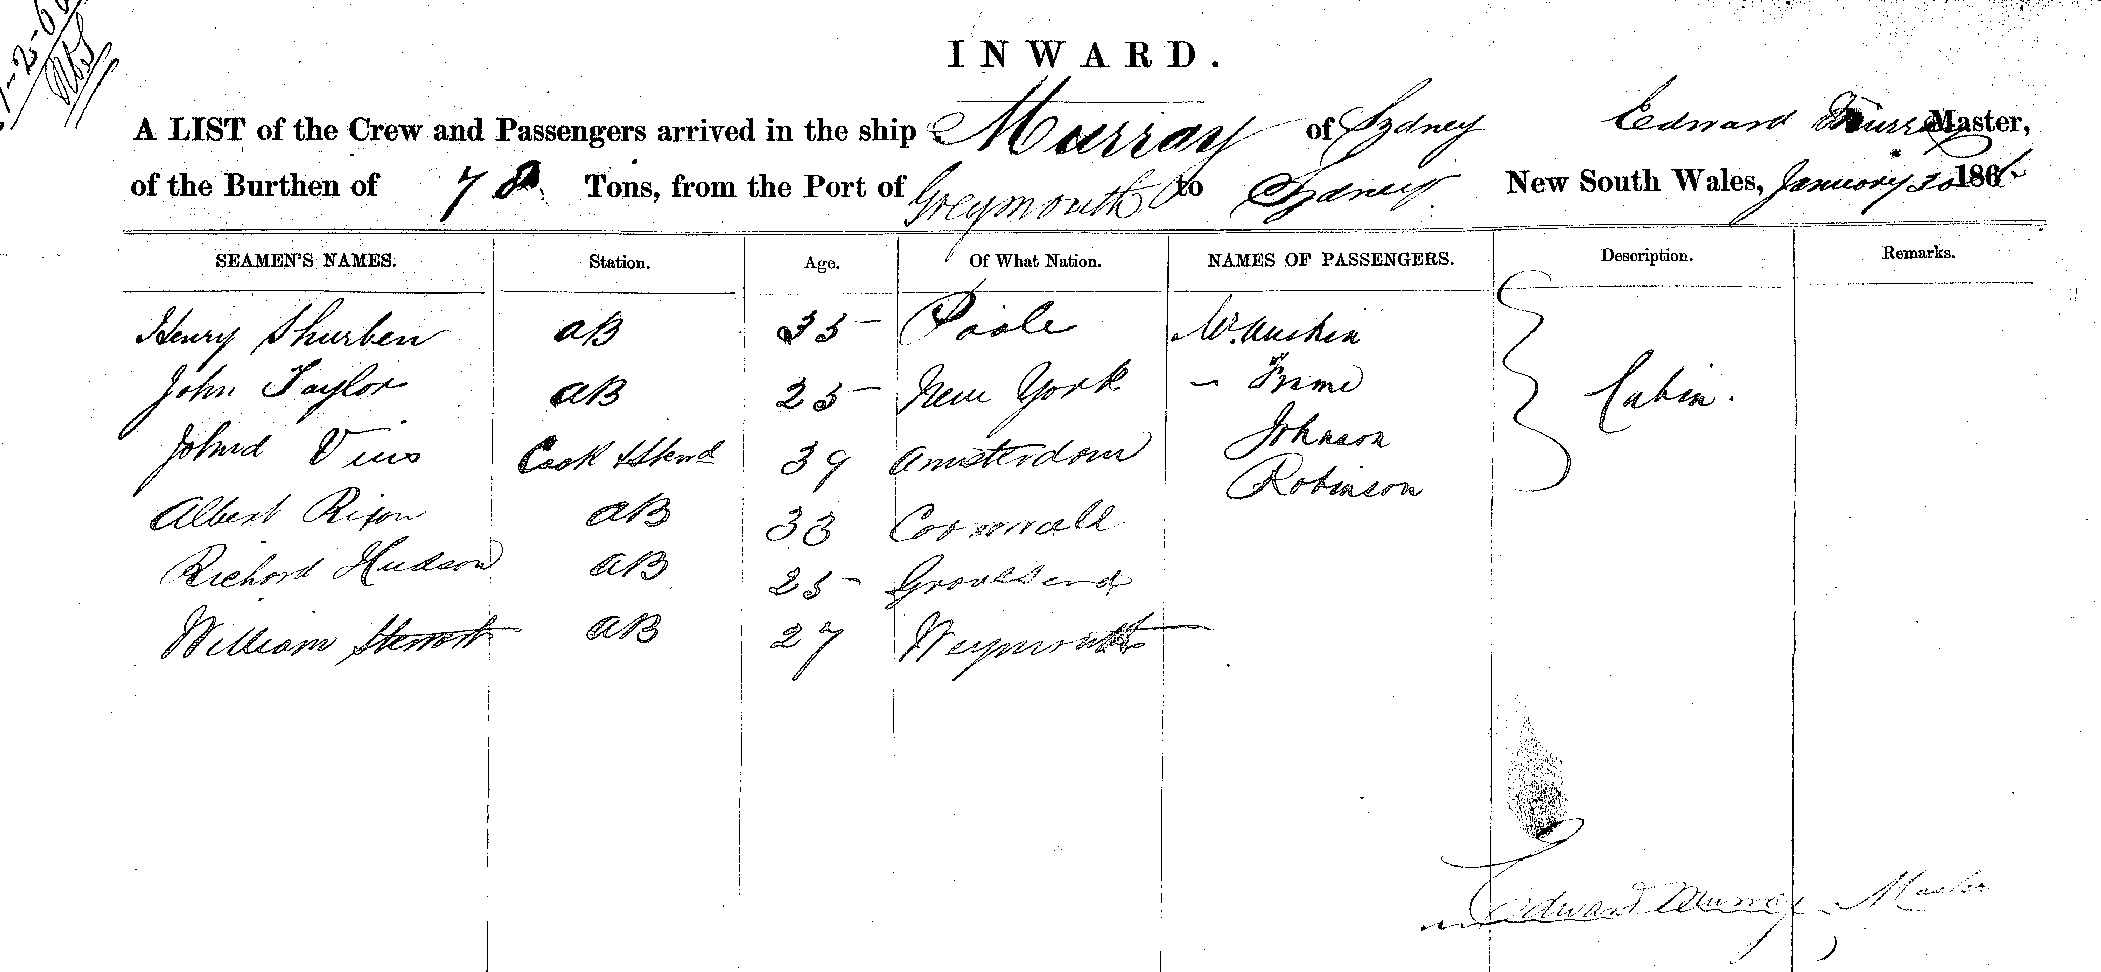 1-2-66
INWARD.
A LIST of the Crew and Passengers arrived in the ship Murray of Sydney Edward Murray Master,
of the Burthen of 78 Tons, from the Port of Greymouth to Sydney New South Wales, January 30 1866
SEAMEN'S NAMES. Station. Age. Of What Nation. NAMES OF PASSENGERS. Description. Remarks.
Henry Shurben AB 35 Poole Mr. Auskin
John Taylor AB 25 New York - Frame Cabin.
John Vius Cook & Stewd 39 Amsterdam Johnson
Robinson
Albert Rixon AB 33 Cornwall
Richard Hudson AB 25 Gravesend
William AB 27 Weymouth
Edward Murray Master